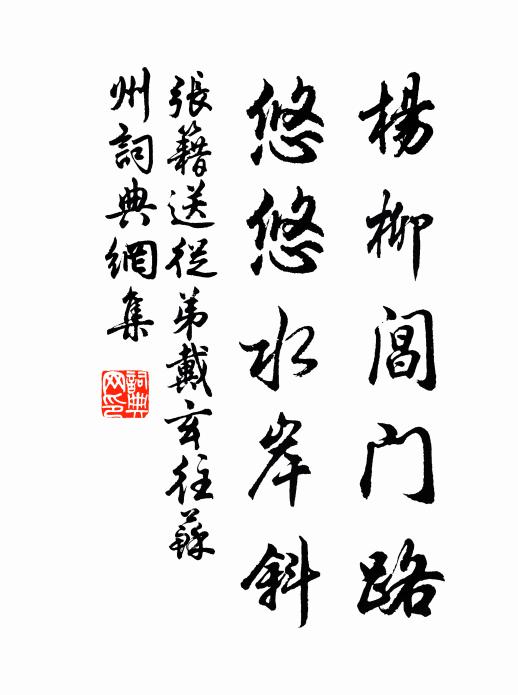 楊柳閶門路
悠悠水岸斜
張籍送從弟戴玄往蘇
州詞典網集
詞典
网印